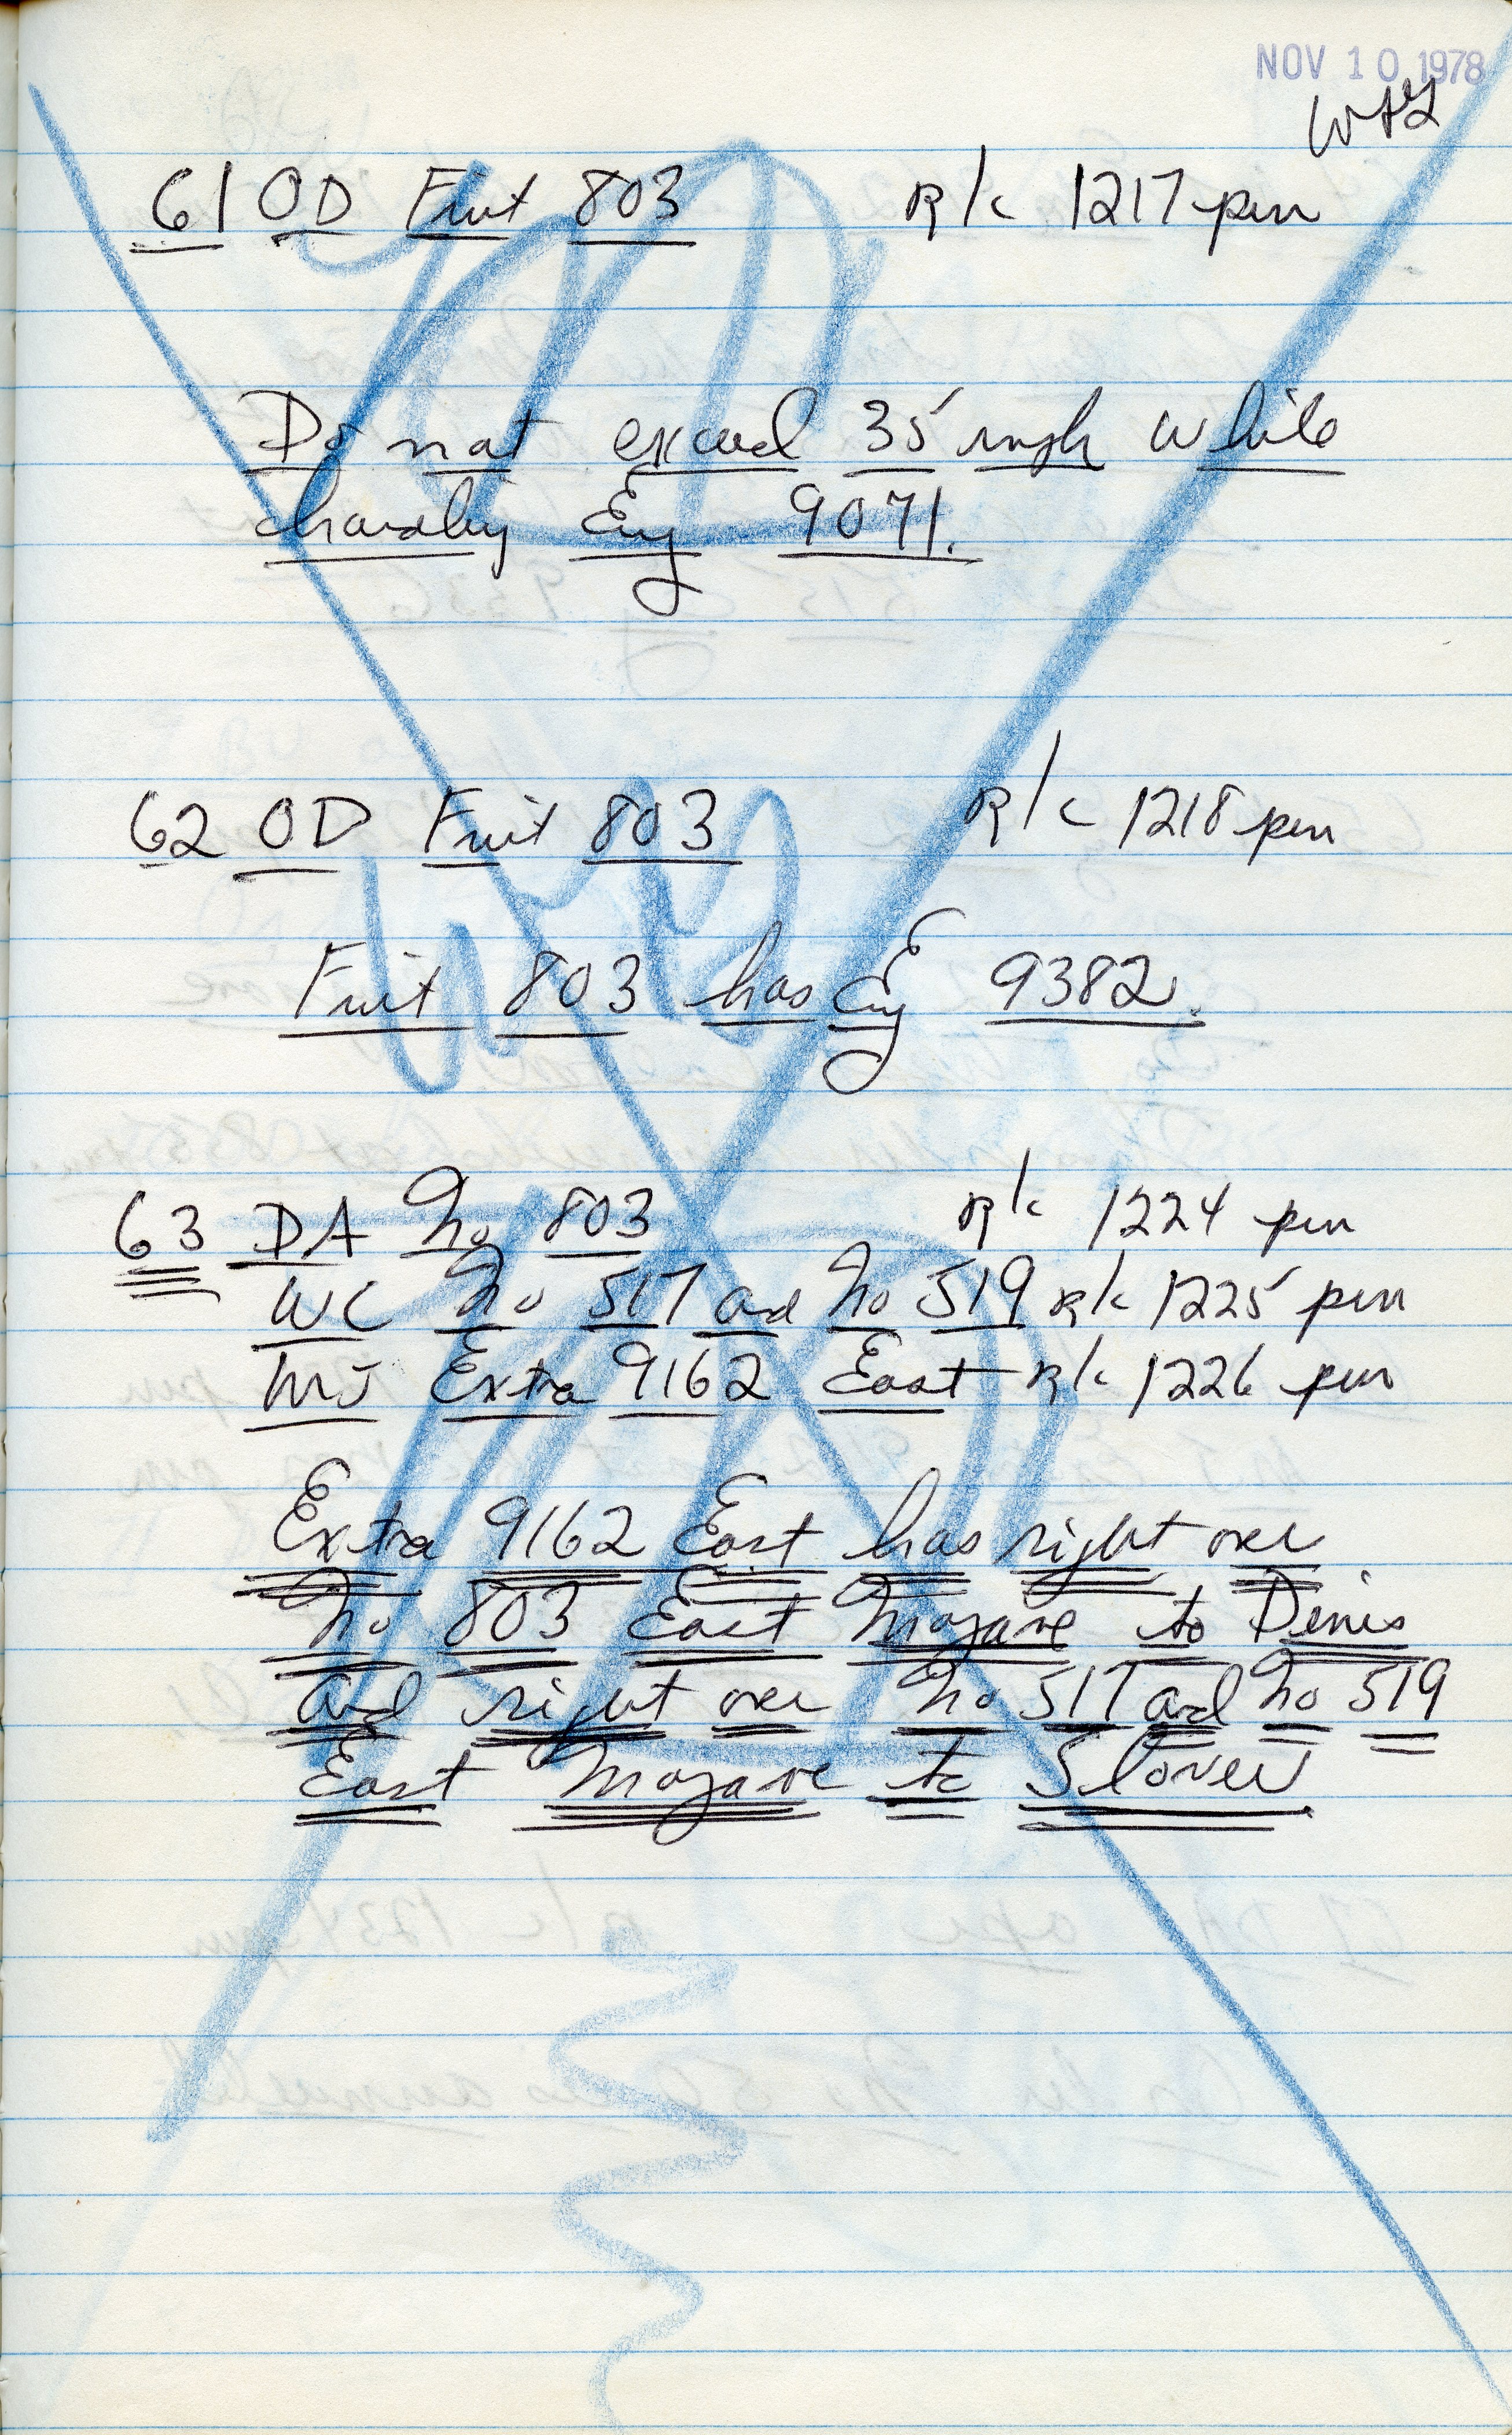 NOV 10 1978
61 OD First 803 R/c 1217 pm
Do not exceed 35 mph while
handling Eng 9071.
62 OD First 803 R/c 1218 pm
First 803 has Eng 9382.
63 DA No 803 R/c 1224 pm
WC No 517 and No 519 R/c 1225 pm
MJ Extra 9162 East R/c 1226 pm
Extra 9162 East has right over
No 803 East Mojave to Denis
and right over No 517 and No 519
East Mojave to Slover